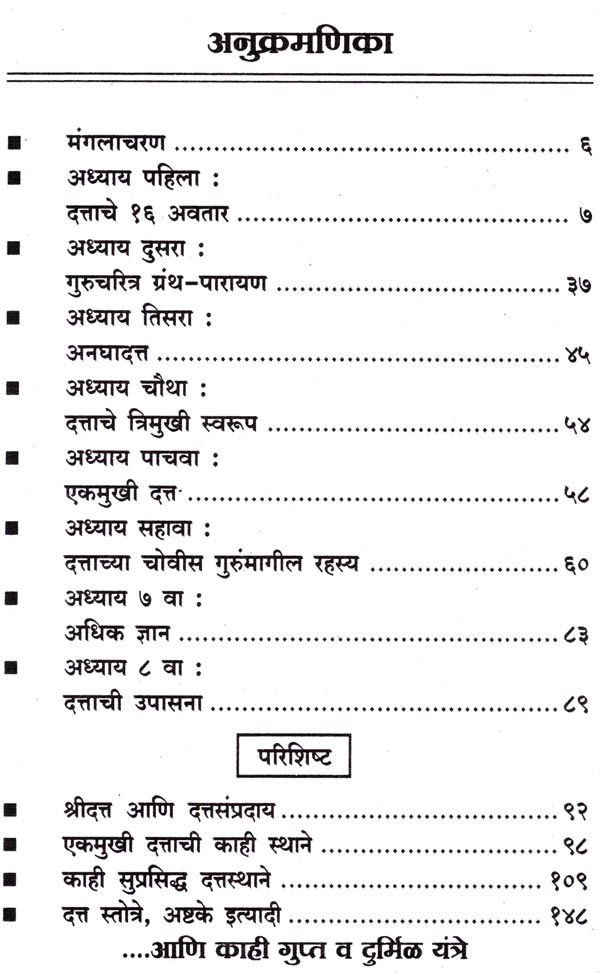 अनुक्रमणिका
■ मंगलाचरण ........................................ ६
■ अध्याय पहिला :
दत्ताचे १६ अवतार .................................. ७
■ अध्याय दुसरा :
गुरुचरित्र ग्रंथ-पारायण ............................. ३७
■ अध्याय तिसरा :
अनघादत्त ........................................ ४५
■ अध्याय चौथा :
दत्ताचे त्रिमुखी स्वरूप .............................. ५४
■ अध्याय पाचवा :
एकमुखी दत्त ..................................... ५८
■ अध्याय सहावा :
दत्ताच्या चोवीस गुरुंमागील रहस्य ................... ६०
■ अध्याय ७ वा :
अधिक ज्ञान ...................................... ८३
■ अध्याय ८ वा :
दत्ताची उपासना ................................... ८९
परिशिष्ट
■ श्रीदत्त आणि दत्तसंप्रदाय ............................ ९२
■ एकमुखी दत्ताची काही स्थाने ........................ ९८
■ काही सुप्रसिद्ध दत्तस्थाने ........................... १०९
■ दत्त स्तोत्रे, अष्टके इत्यादी .......................... १४८
....आणि काही गुप्त व दुर्मिळ यंत्रे